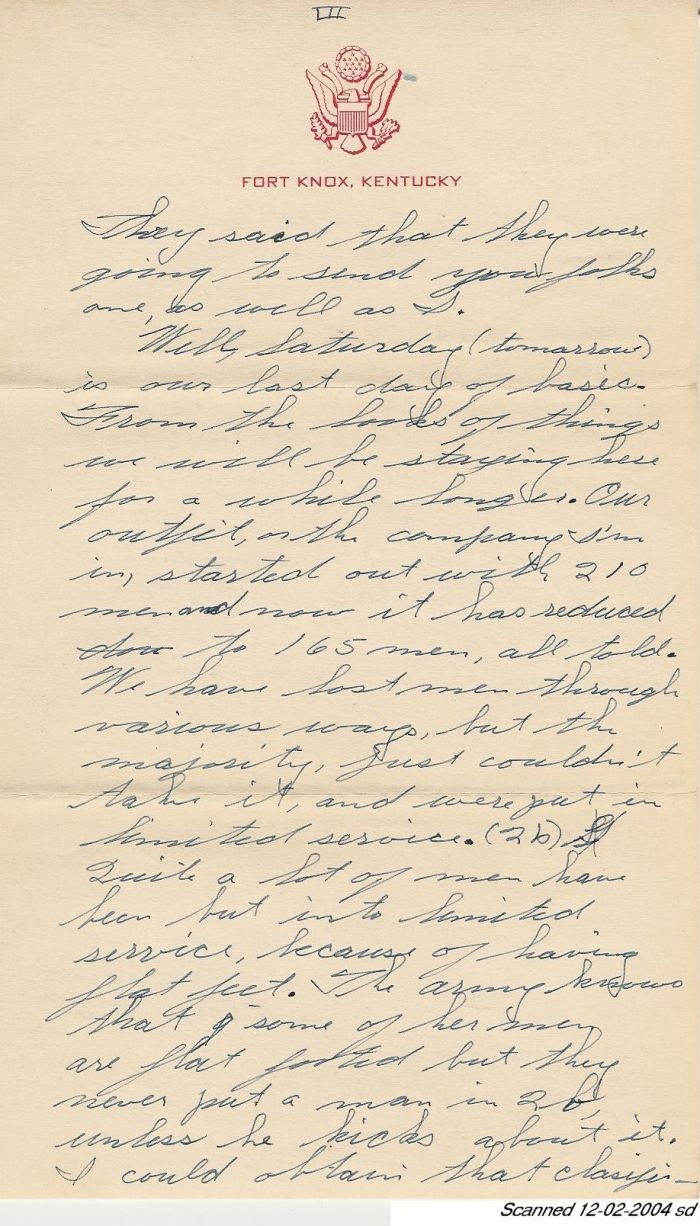 III
FORT KNOX, KENTUCKY
They said that they were
going to send you folks
one, as well as I.
Well, Saturday (tomorrow)
is our last day of basic.
From the looks of things
we will be staying here
for a while longer. Our
outfit, or the company I'm
in, started out with 210
men and now it has reduced
dow to 165 men, all told.
We have lost men through
various ways, but the
majority, just couldn't
take it, and were put in
limited service. (2b)
Quite a lot of men have
been but into limited
service, because of having
flat feet. The army knows
that some of her men
are flat footed but they
never put a man in 2b,
unless he kicks about it.
I could obtain that clasifi-
Scanned 12-02-2004 sd